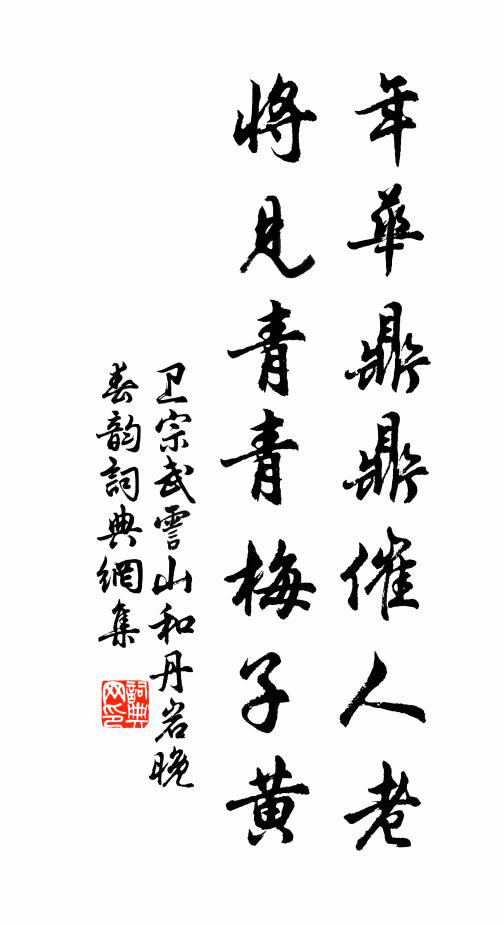 年華鼎鼎催人老
將見青青梅子黃
卫宗武雲山和丹岩晚
春韵詞典網集
詞典
网印